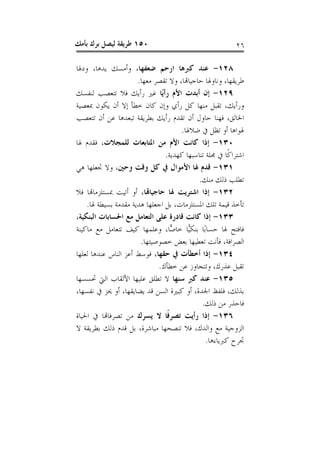 ٢٦
١٥٠ طريقة ليصل برك بأمك
١٢٨- عند كبرها ارحم ضعفها، وأمسك يدها، ودلها
طريقها، وناولها حاجياتها، ولا تقصر معها.
١٢٩- إن أبدت الأم رأيًا غير رأيك فلا تتعصب لنفسك
ورأيك، تقبل منها كل رأي وإن كان خطأ إلا أن يكون بمعصية
الخالق، فهنا حاول أن تقدم رأيك بطريقة تبعدها عن أن تتعصب
لهواها أو تظل في ضلالها.
١٣٠- إذا كانت الأم من المتابعات للمجلات، فقدم لها
اشتراكًا في مجلة تناسبها كهدية.
١٣١- قدم لها الأموال في كل وقت وحين، ولا تجعلها هي
تطلب ذلك منك.
١٣٢- إذا اشتريت لها حاجياتها، أو أتيت بمستلزماتها فلا
تأخذ قيمة تلك المستلزمات، بل اجعلها هدية مقدمة بسيطة لها.
١٣٣- إذا كانت قادرة على التعامل مع الحسابات البنكية،
فافتح لها حسابًا بنكيًّا خاصًّا، وعلمها كيف تتعامل مع ماكينة
الصرافة، فأنت تعطيها بعض خصوصيتها.
١٣٤- إذا أخطأت في حقها، فوسط أعز الناس عندها لعلها
تقبل عذرك، وتتجاوز عن خطأك.
١٣٥- عند كبر سنها لا تطلق عليها الألقاب التي تحسسها
بذلك، فلفظ الجدة، أو كبيرة السن قد يضايقها، أو يحز في نفسها،
فاحذر من ذلك.
١٣٦- إذا رأيت تصرفًا لا يسرك من تصرفاتها في الحياة
الزوجية مع والدك، فلا تنصحها مباشرة، بل قدم ذلك بطريقة لا
تجرح كبرياءها.